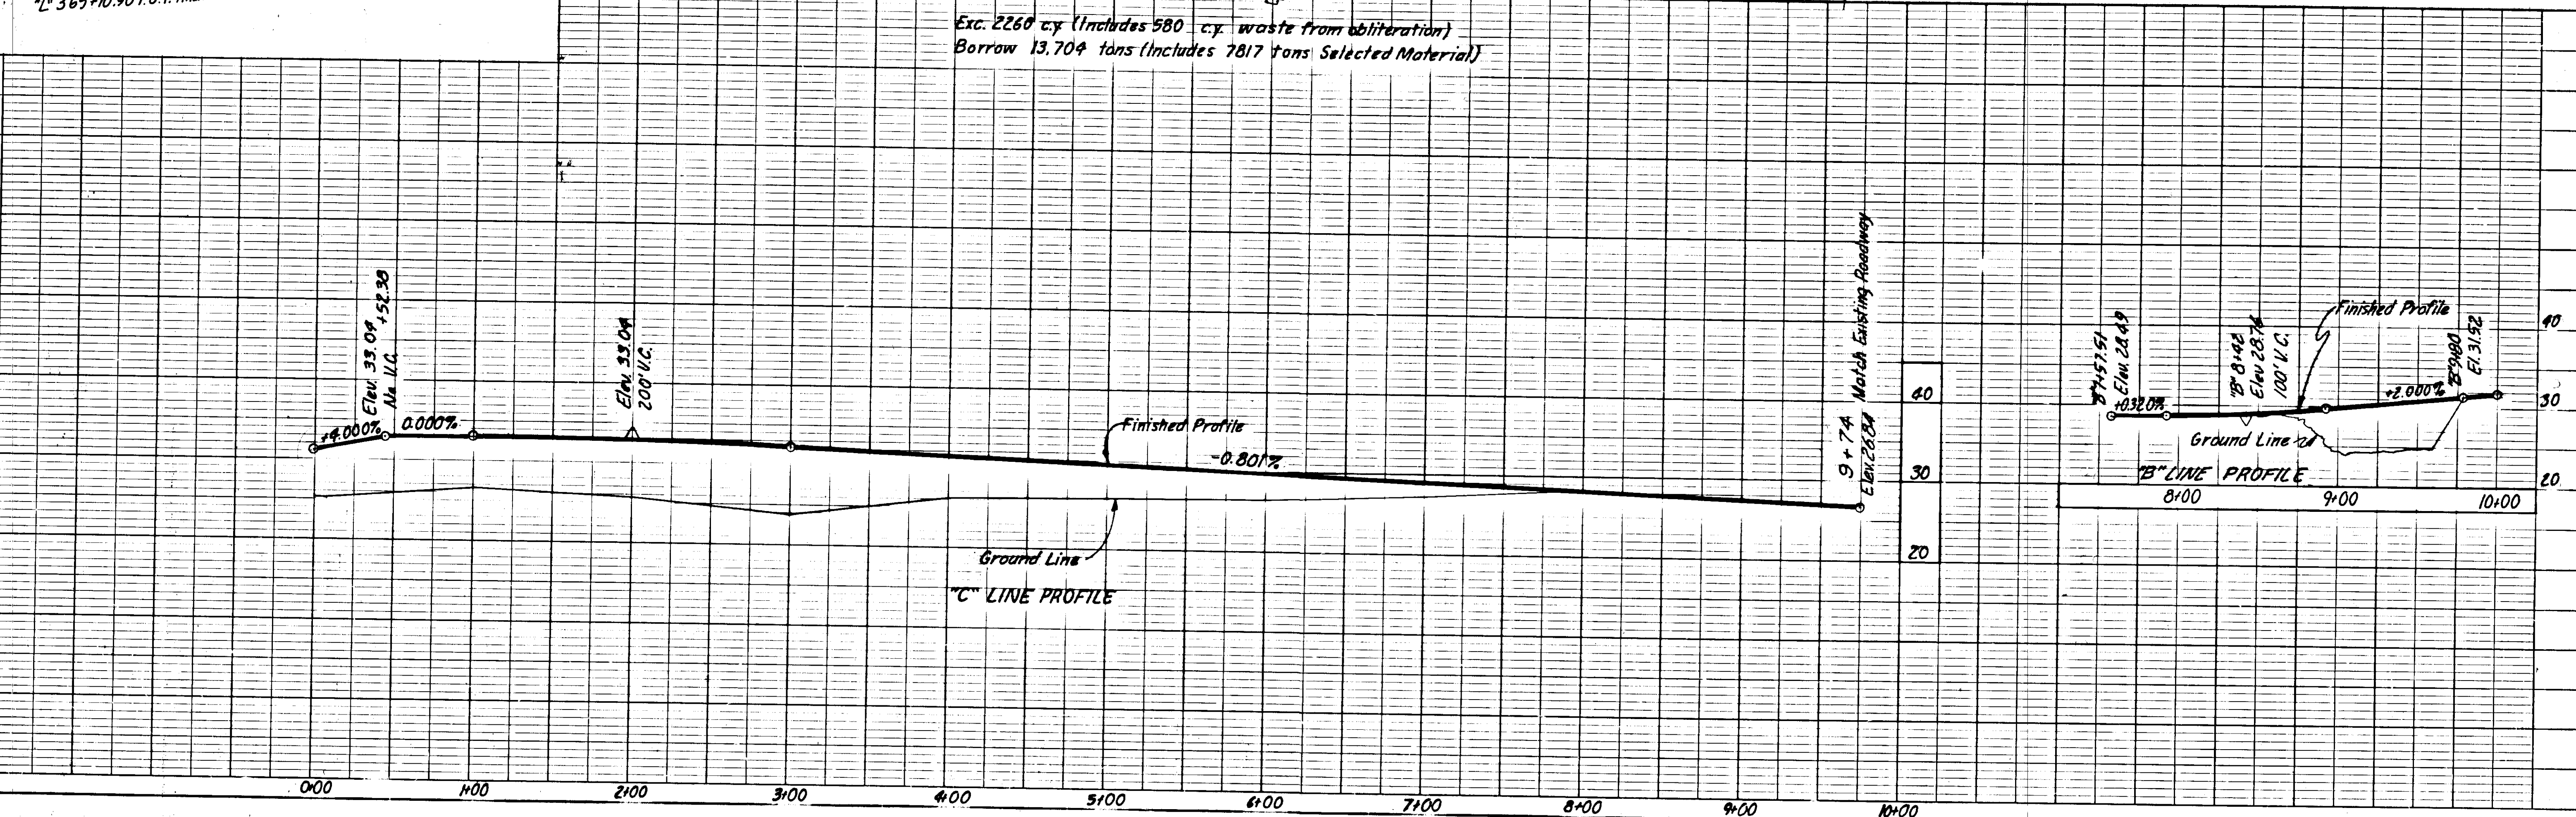 Exc. 2260 c.y. (Includes 580 c.y. waste from obliteration)
Borrow 13,704 tons (Includes 7817 tons Selected Material)
Elev. 33.04
No V.C. +52.38
+4.000%
0.000%
Elev. 33.04
200' V.C.
Finished Profile
-0.801%
Ground Line
"C" LINE PROFILE
9+74 Match Existing Roadway
Elev. 26.84
40
30
20
"B" 7+57.51
Elev. 28.49
+0.320%
"B" 8+42
Elev 28.76
100' V.C.
Finished Profile
+2.000%
"B" 9+80
El. 31.52
Ground Line
"B" LINE PROFILE
8+00 9+00 10+00
40
30
20
0+00 1+00 2+00 3+00 4+00 5+00 6+00 7+00 8+00 9+00 10+00